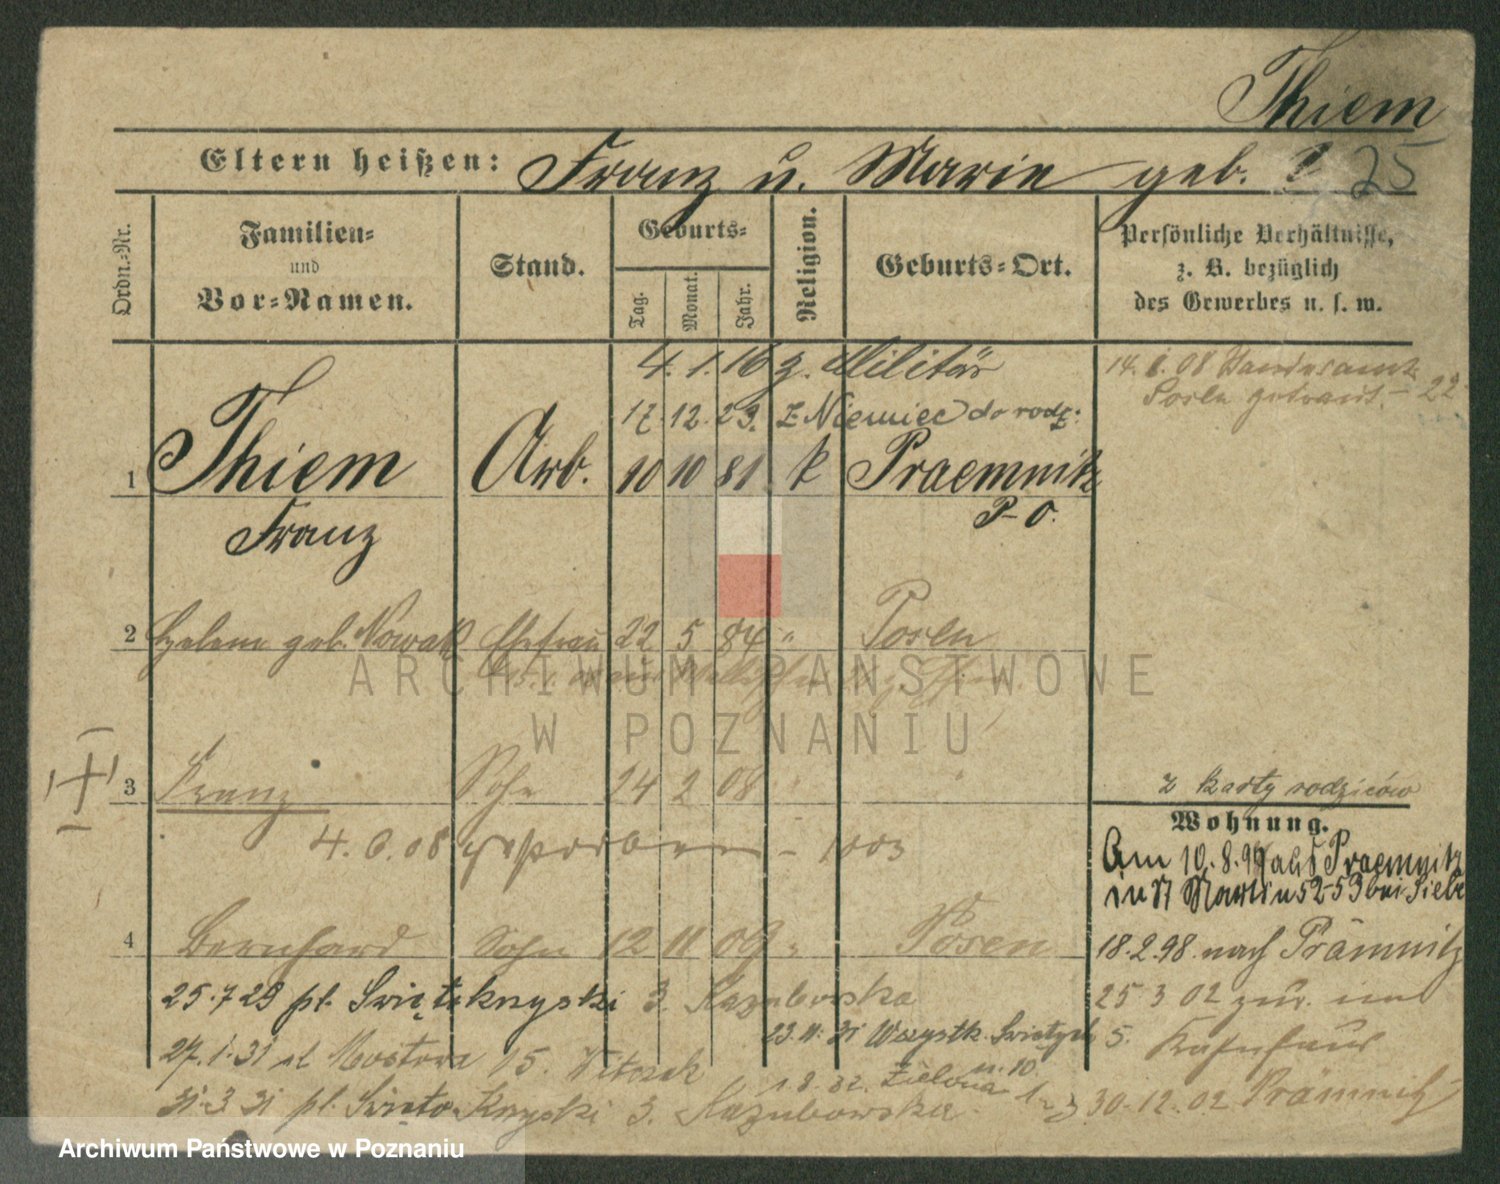 Thiem
Eltern heißen: Franz u. Marie geb. ?
25
Ordn.-Nr.
Familien-
und
Vor-Namen.
Stand.
Geburts-
Tag.
Monat.
Jahr.
Religion.
Geburts-Ort.
Persönliche Verhältnisse,
z. B. bezüglich
des Gewerbes u. s. w.
4. 1. 16 z. Militär
14. 08 Standesamt
Posen getraut. - 22
17. 12. 23. z Niemiec do rodz.
1 Thiem Arb. 10 10 81 k Praemnitz
P-O.
Franz
2 geb. Nowak Ehefrau 22 5 84 " Posen
ARCHIWUM PAŃSTWOWE
W POZNANIU
3 Franz Sohn 24 2 08
z karty rodziców
4. 08 gestorben - 1003
Wohnung.
Am 10. 8. 9 aus Praemnitz
in St Martin 52-53 bei
4 Bernhard Sohn 12 11 09 " Posen
18. 2. 98. nach Prämnitz
25. 7 28 pl. Świętokrzyski 3. Kazubowska
25 3 02 zur.
23. 11. 31 Wszystk. Świętych 5.
27. 1. 31 ul Mostowa 15. Witczak
1. 8. 32. Zielona 1
31. 3 31 pl. Święto-Krzyski 3. Kazubowska
30. 12. 02 Prämnitz
Archiwum Państwowe w Poznaniu